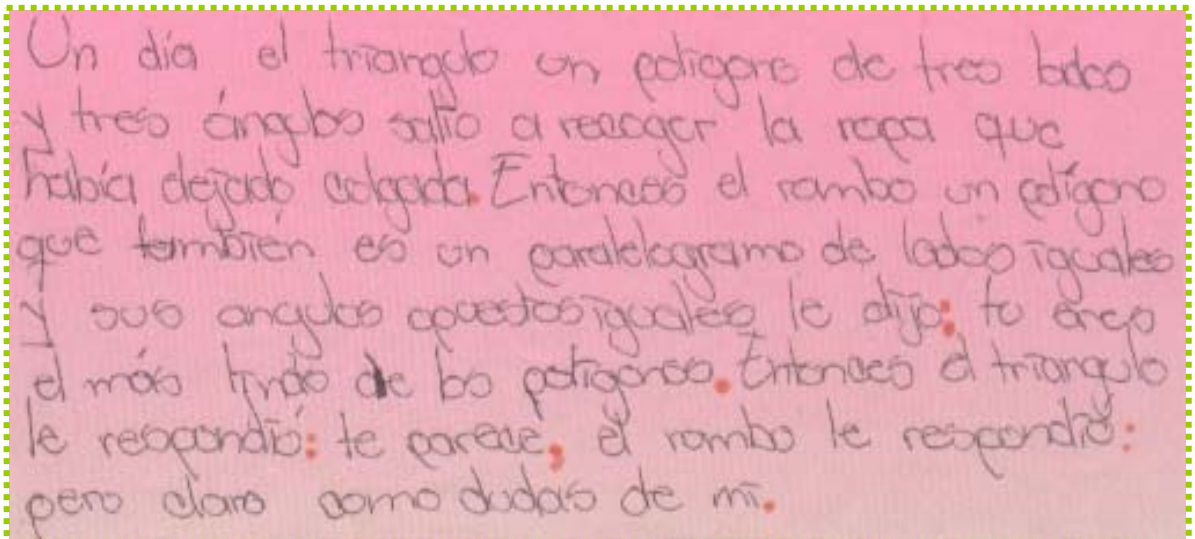 Un día el triangulo un poligono de tres lados
y tres ángulos salio a recoger la ropa que
había dejado colgada. Entonces el rombo un polígono
que también es un paralelogramo de lados iguales
y sus angulos opuestos iguales le dijo: tu eres
el más lindo de los poligonos. Entonces el triangulo
le respondió: te parece, el rombo le respondió:
pero claro como dudas de mi.